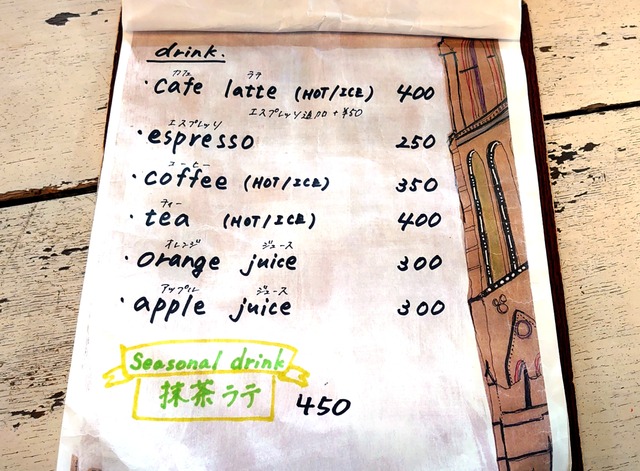 drink.
カフェ ラテ
・cafe latte (HOT/ICE) 400
エスプレッソ追加 +¥50
エスプレッソ
・espresso 250
コーヒー
・coffee (HOT/ICE) 350
ティー
・tea (HOT/ICE) 400
オレンジ ジュース
・orange juice 300
アップル ジュース
・apple juice 300
Seasonal drink
抹茶ラテ 450